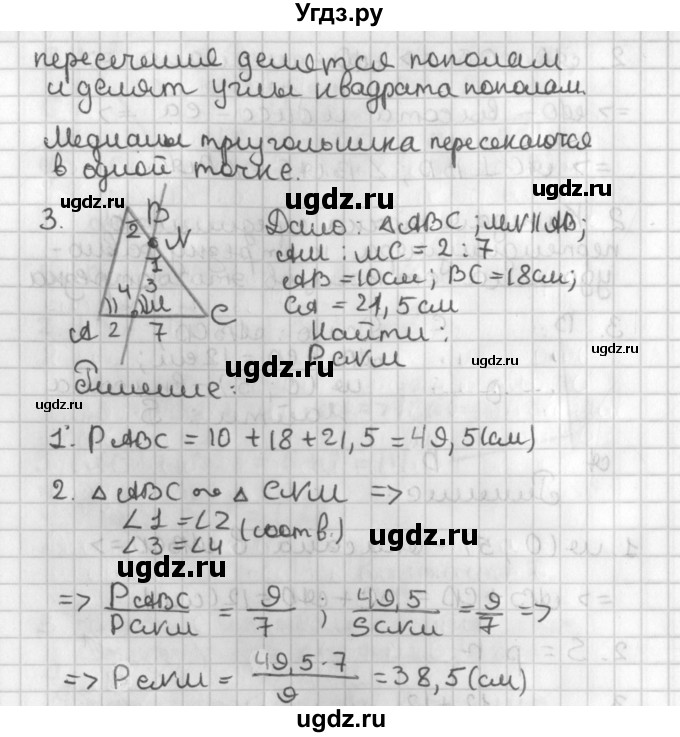 Угдз.ру
пересечения делятся пополам
и делят углы квадрата пополам.
Медианы треугольника пересекаются
в одной точке.
ugdz.ru
ugdz.ru ugdz.ru
3. B Дано: △ABC; MN∥AB;
2 N AM : MC = 2 : 7
1 AB = 10 см; BC = 18 см;
4 3 M C CA = 21,5 см
A 2 7 Найти:
ugdz.ru PCNM ugdz.ru
Решение:
ugdz.ru
1. PABC = 10 + 18 + 21,5 = 49,5 (см)
2. △ABC ∾ △CNM =>
∠1 = ∠2 (соотв.)
∠3 = ∠4
ugdz.ru
ugdz.ru
=> PABC / PCNM = 9/7 ; 49,5 / SCNM = 9/7 =>
=> PCNM = 49,5·7 / 9 = 38,5 (см)
ugdz.ru ugdz.ru
ugdz.ru